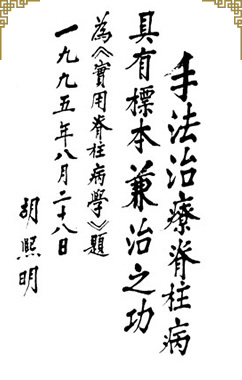 手法治療脊柱病
具有標本兼治之功
為《實用脊柱病學》題
一九九五年八月二十八日
胡熙明